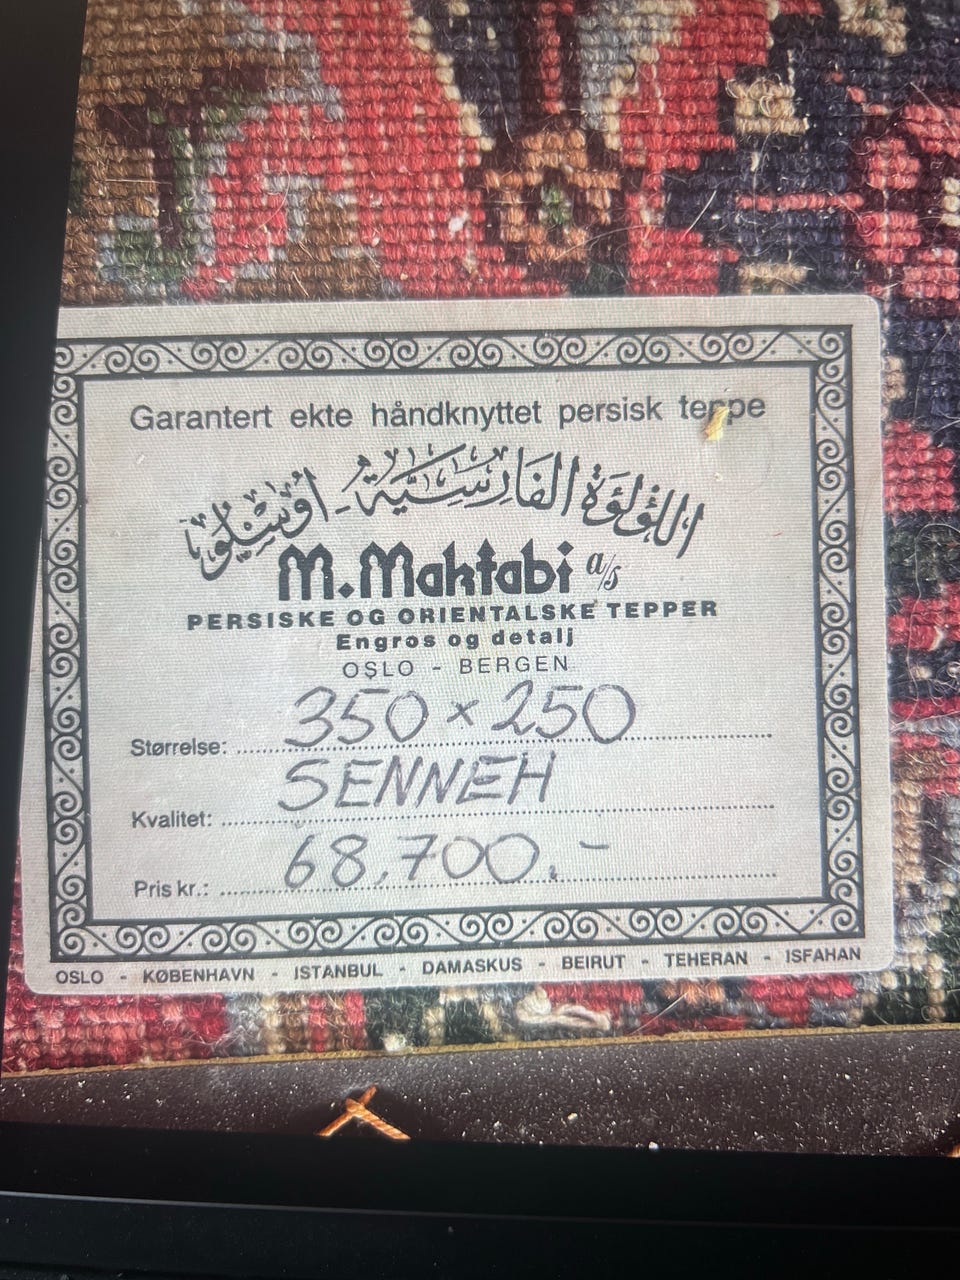 Garantert ekte håndknyttet persisk teppe
اللؤلؤة الفارسية - أوسلو
M. Maktabi a/s
PERSISKE OG ORIENTALSKE TEPPER
Engros og detalj
OSLO - BERGEN
Størrelse: 350 x 250
Kvalitet: SENNEH
Pris kr.: 68,700.-
OSLO - KØBENHAVN - ISTANBUL - DAMASKUS - BEIRUT - TEHERAN - ISFAHAN